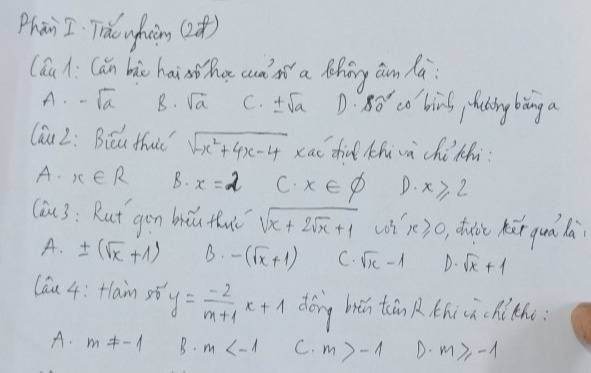 Phần I. Trắc nghiệm (2đ)
Câu 1: Căn bậc hai số học của số a không âm là:
A. -√a B. √a C. ±√a D. số có bình phương bằng a
Câu 2: Biểu thức √(-x²+4x-4) xác định khi và chỉ khi:
A. x ∈ R B. x = 2 C. x ∈ ∅ D. x ⩾ 2
Câu 3: Rút gọn biểu thức √(x + 2√x + 1) với x ⩾ 0, được kết quả là:
A. ±(√x + 1) B. -(√x + 1) C. √x - 1 D. √x + 1
Câu 4: Hàm số y = -2/(m+1) x + 1 đồng biến trên R khi và chỉ khi:
A. m ≠ -1 B. m < -1 C. m > -1 D. m ⩾ -1